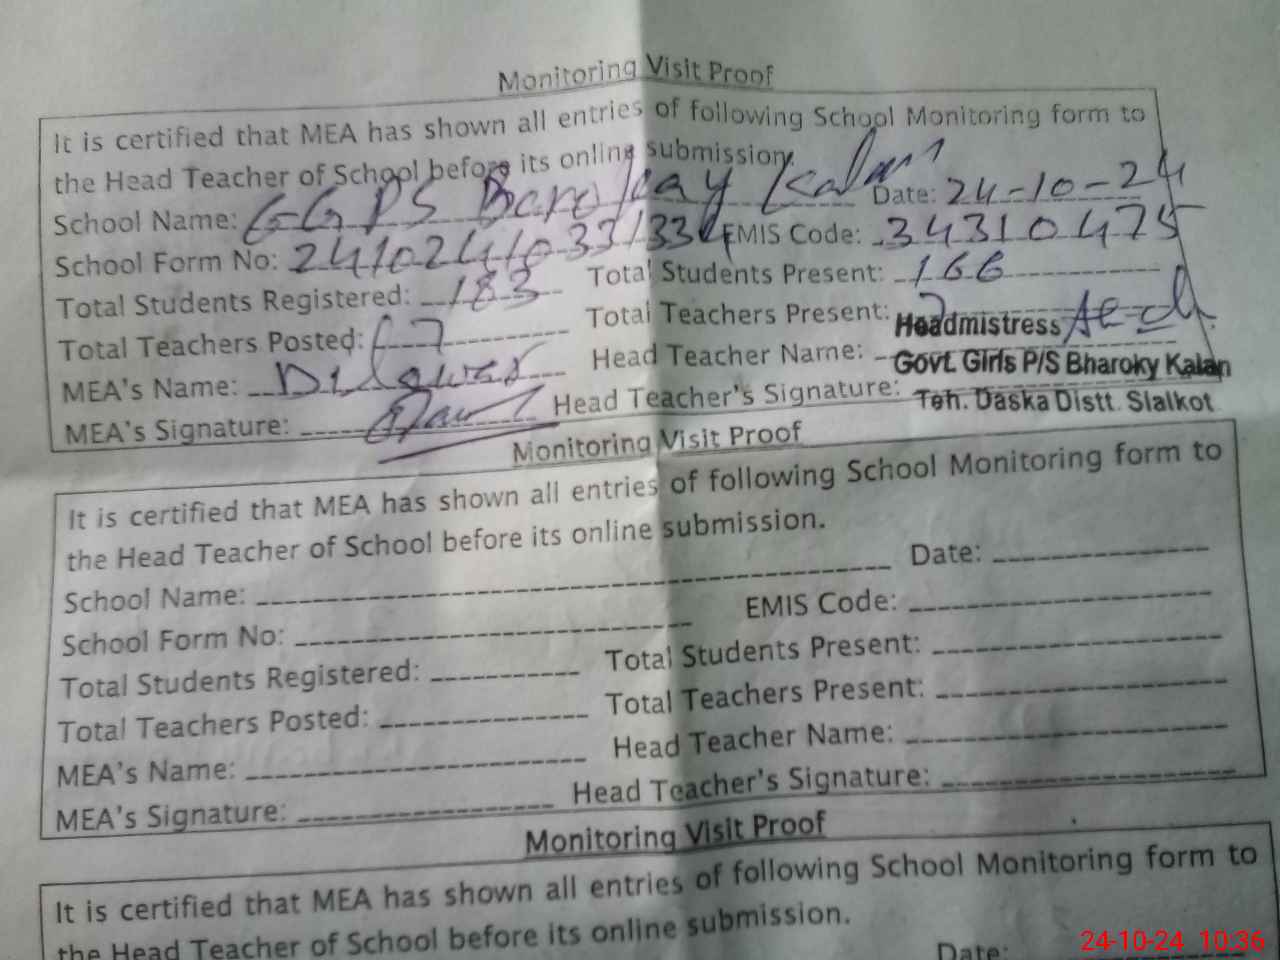 Monitoring Visit Proof
It is certified that MEA has shown all entries of following School Monitoring form to
the Head Teacher of School before its online submission.
School Name: GGPS Barokay Kalan Date: 24-10-24
School Form No: 24102410331334 EMIS Code: 34310475
Total Students Registered: 183 Total Students Present: 166
Total Teachers Posted: 7 Total Teachers Present: 7
MEA's Name: Dilawar Head Teacher Name: Headmistress
MEA's Signature: Head Teacher's Signature: Govt. Girls P/S Bharoky Kalan
Teh. Daska Distt. Sialkot
Monitoring Visit Proof
It is certified that MEA has shown all entries of following School Monitoring form to
the Head Teacher of School before its online submission.
School Name: Date:
School Form No: EMIS Code:
Total Students Registered: Total Students Present:
Total Teachers Posted: Total Teachers Present:
MEA's Name: Head Teacher Name:
MEA's Signature: Head Teacher's Signature:
Monitoring Visit Proof
It is certified that MEA has shown all entries of following School Monitoring form to
the Head Teacher of School before its online submission.
Date:
24-10-24 10:36